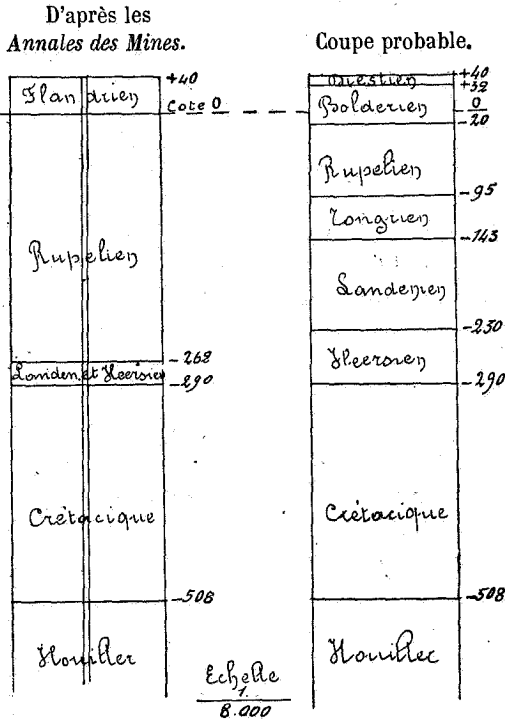 D'après les
Annales des Mines.
+40
Flandrien
Cote 0
Rupelien
-268
Landen. et Heersien
-290
Crétacique
-508
Houiller
Coupe probable.
+40
Diestien
+32
Bolderien
0
-20
Rupelien
-95
Tongrien
-143
Landenien
-230
Heersien
-290
Crétacique
-508
Houiller
Echelle
1.
8.000